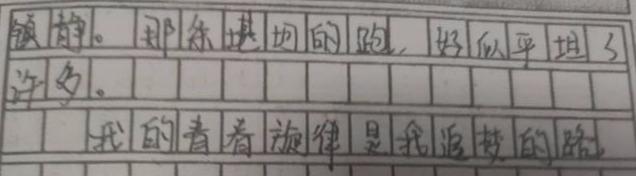 镇静。那条堪坷的跑，好似平坦了
许多。
我的青春旋律是我追梦的路